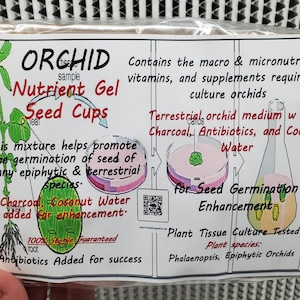 ORCHID
tissue
sample
Nutrient Gel
Seed Cups
Contains the macro & micronutr
vitamins, and supplements requir
culture orchids
Terrestrial orchid medium w
Charcoal, Antibiotics, and Coc
Water
is mixture helps promote
e germination of seed of
ny epiphytic & terrestrial
species.
Charcoal, Coconut Water
added for enhancement.
100% Sterile Guaranteed
root
Antibiotics Added for success
for Seed Germination
Enhancement
Plant Tissue Culture Tested
Plant species:
Phalaenopsis, Epiphytic Orchids